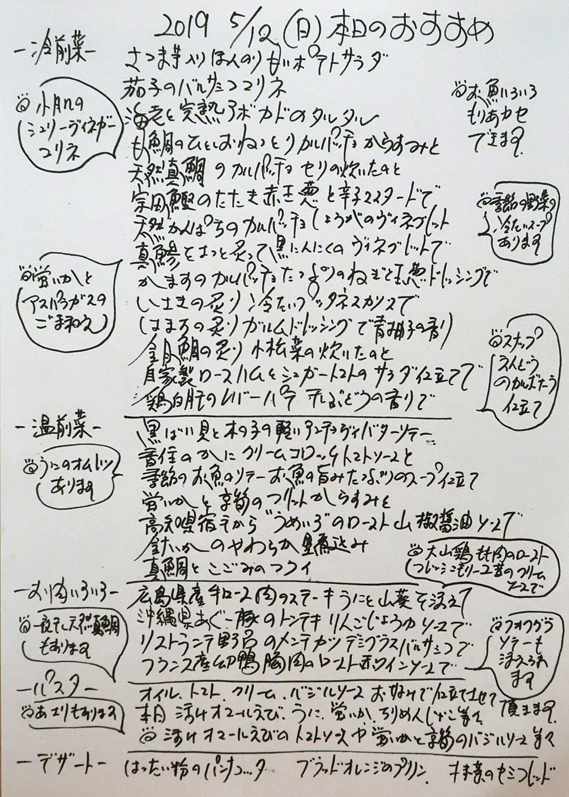 2019 5/12(日)本日のおすすめ
ー冷前菜ー
さつま芋入りほんのり甘いポテトサラダ
茄子のバルサミコマリネ
海老と完熟アボカドのタルタル
も鯛のひと
カルパッチョ からすみと
天然真鯛のカルパッチョ セリの炊いたのと
宗田鰹のたたき 赤玉葱と辛子マスタードで
天然かんぱちのカルパッチョ しょうがのヴィネグレット
真鯵をさっと炙って 黒にんにくのヴィネグレットで
かますのカルパッチョ たっぷりのねぎと玉葱ドレッシングで
いさきの炙り 冷たいプッタネスカソースで
はまちの炙り ガルムドレッシングで 青柚子の香り
金目鯛の炙り 小松菜の炊いたのと
自家製ロースハムとシュガートマトのサラダ仕立てで
鶏白肝のレバーパテ 干しぶどうの香りで
小肌の
シェリーヴィネガー
マリネ
蛍いかと
アスパラガスの
ごま和え
お魚いろいろ
もりあわせ
できます。
季節の野菜の
冷たいスープ
あります
スナップ
えんどう
のカルボナーラ
仕立て
ー温前菜ー
黒ばい貝と木の子の軽いアンチョヴィバターソテー
香住のかにクリームコロッケ トマトソースと
季節のお魚のソテー お魚の旨みたっぷりのスープ仕立て
蛍いかと筍のフリット からすみと
高知県宿毛から"うめいろ"のロースト 山椒醤油ソースで
のやわらか煮込み
真鯛とこごみの
うにのオムレツ
あります
大山鶏もも肉のロースト
フレッシュモリーユ茸のクリーム
ソースで
ーお肉いろいろー
広島県産牛ロース肉のステーキ うにと山葵を添えて
沖縄県あぐー豚のトンテキ りんごじょうゆソースで
リストランテ野呂のメンチカツ デミグラスバルサミコで
フランス産幼鴨胸肉のロースト 赤ワインソースで
一夜干し天然真鯛
もあります
フォアグラ
ソテーも
添えられ
ます
ーパスター
オイル、トマト、クリーム、バジルソース お好みで仕立てさせて
頂きます。
本日 活けオマールえび、うに、蛍いか、ちりめんじゃこ等々
活けオマールえびのトマトソースや蛍いかと筍のバジルソース等々
あさりもあります
ーデザートー
はったい粉のパンナコッタ ブラッドオレンジのプリン 抹茶のセミフレッド